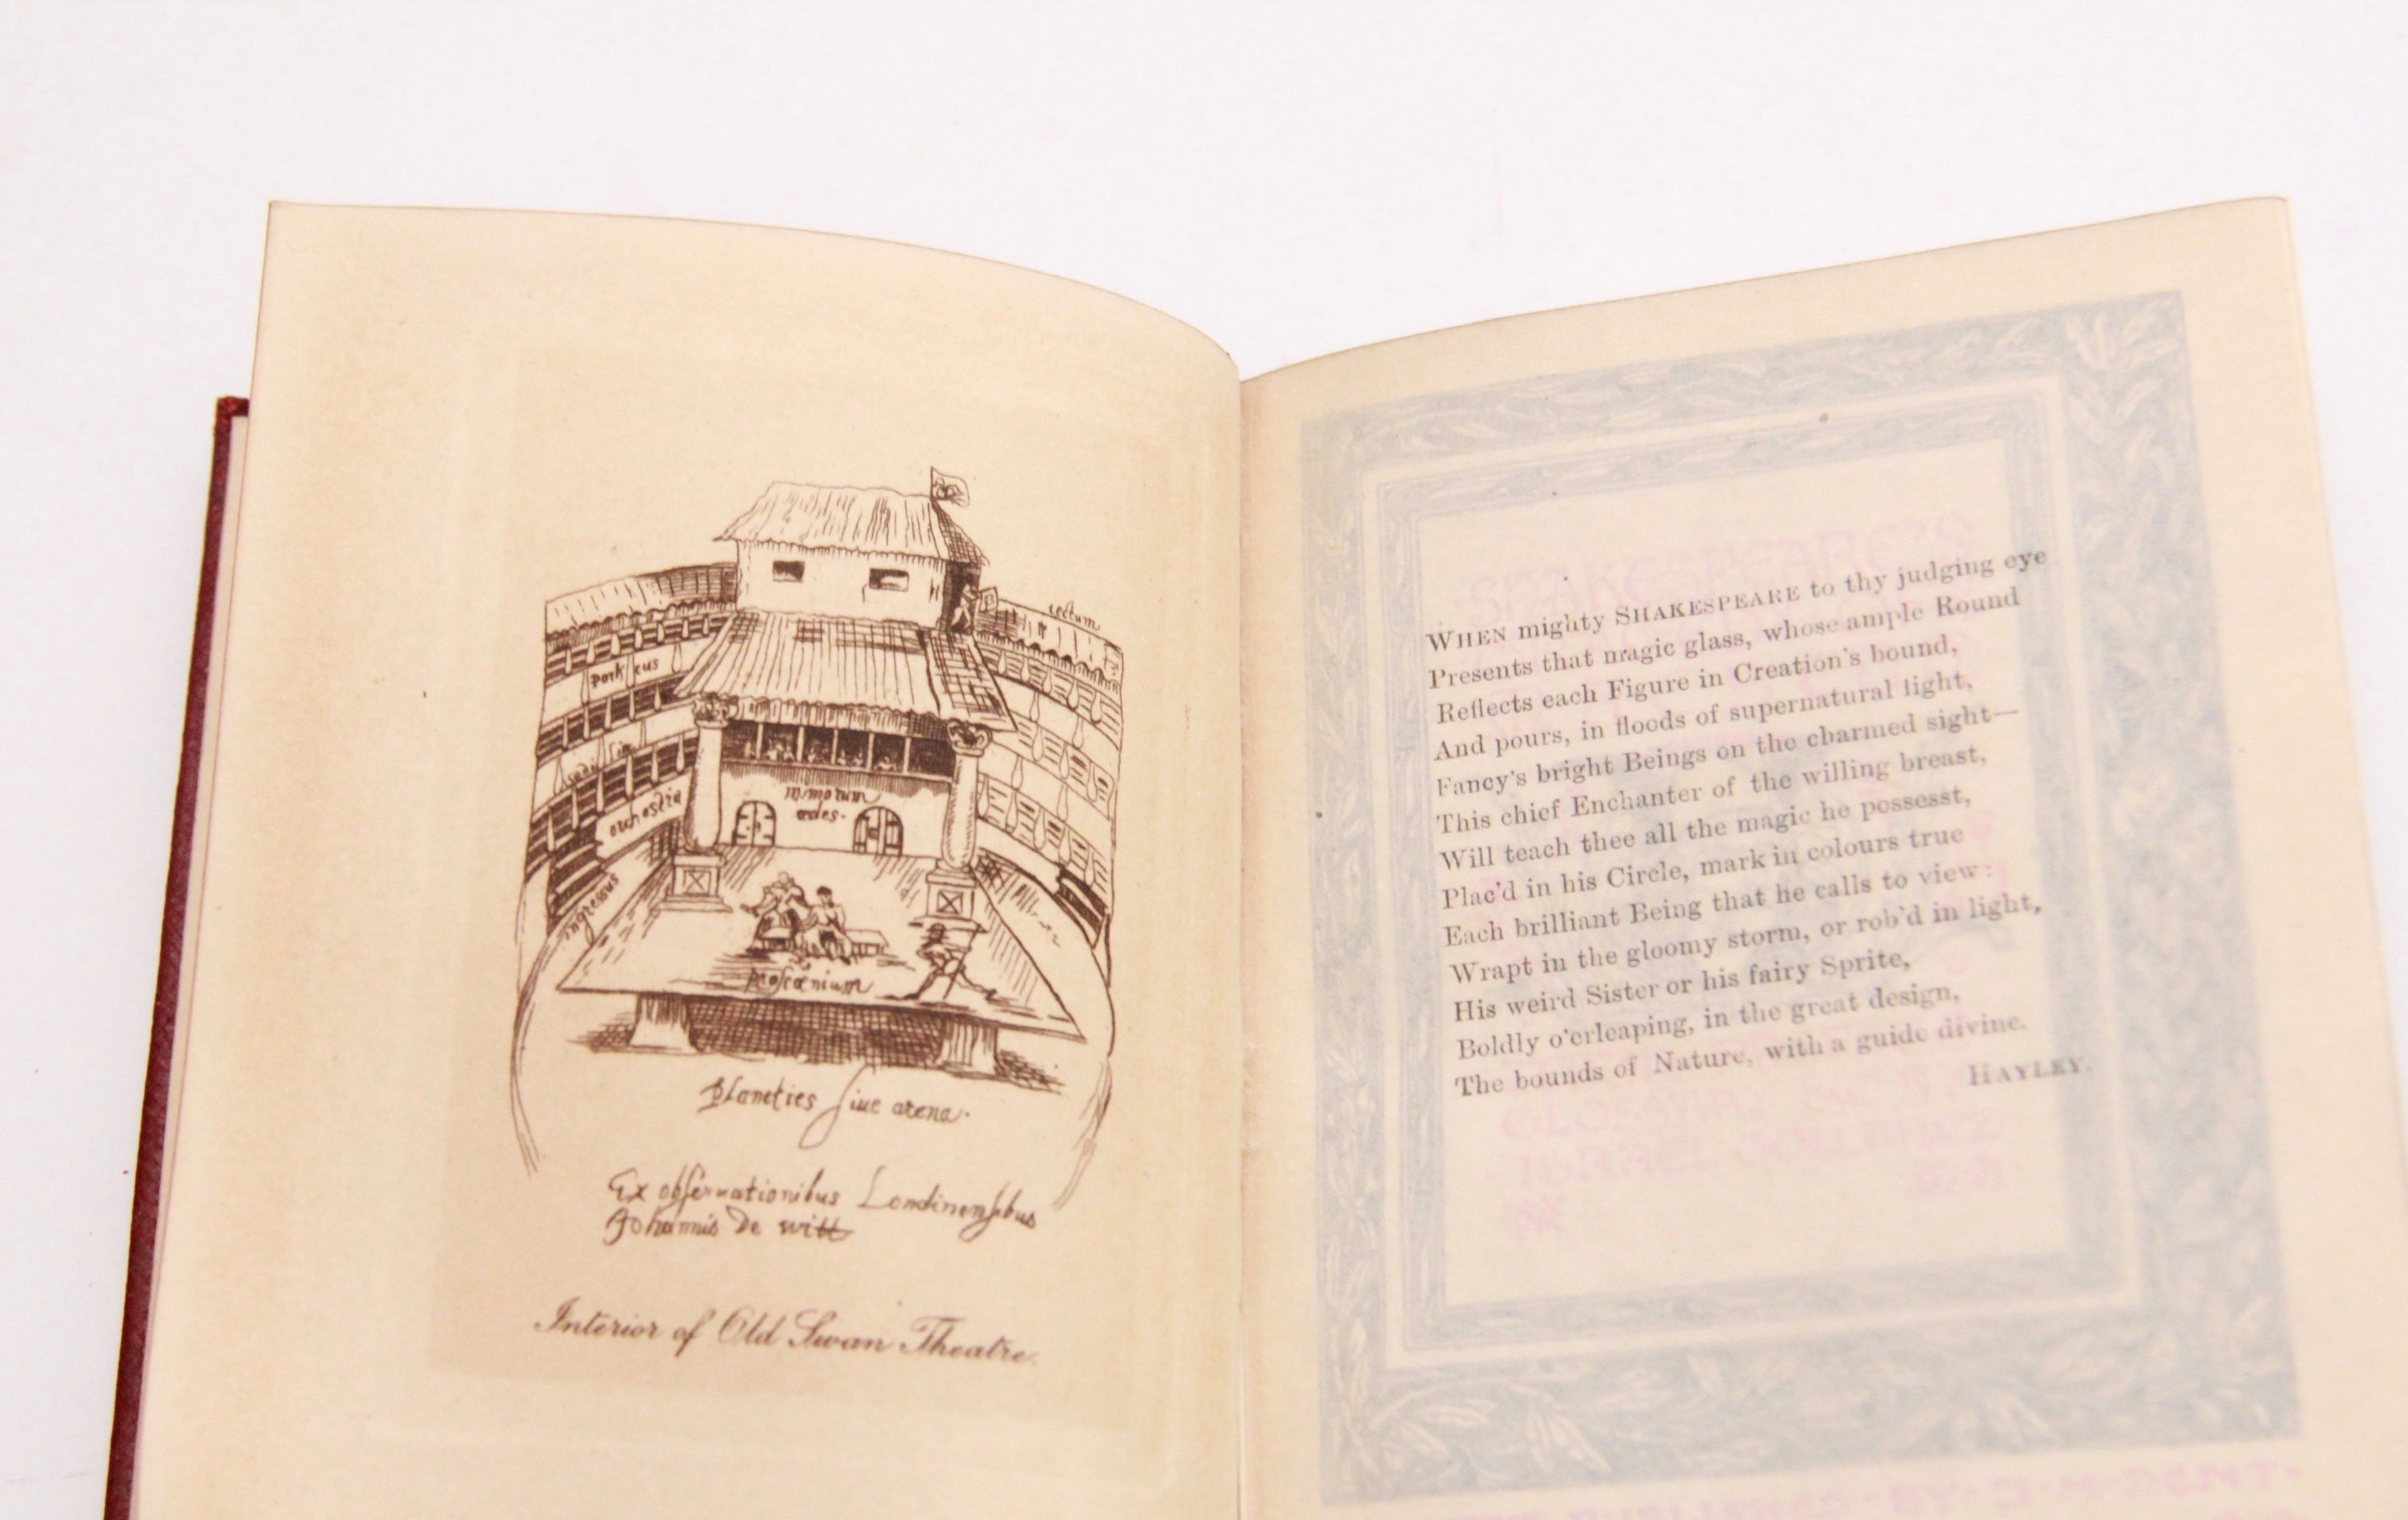 tectum
porticus
sedilia
orchestra
mimorum
ædes.
ingressus
proscænium
Planities siue arena.
Ex obseruationibus Londinensibus
Johannis De witt
Interior of Old Swan Theatre.
WHEN mighty SHAKESPEARE to thy judging eye
Presents that magic glass, whose ample Round
Reflects each Figure in Creation's bound,
And pours, in floods of supernatural light,
Fancy's bright Beings on the charmed sight—
This chief Enchanter of the willing breast,
Will teach thee all the magic he possesst,
Plac'd in his Circle, mark in colours true
Each brilliant Being that he calls to view:
Wrapt in the gloomy storm, or rob'd in light,
His weird Sister or his fairy Sprite,
Boldly o'erleaping, in the great design,
The bounds of Nature, with a guide divine.
HAYLEY.
SHAKESPEARE'S